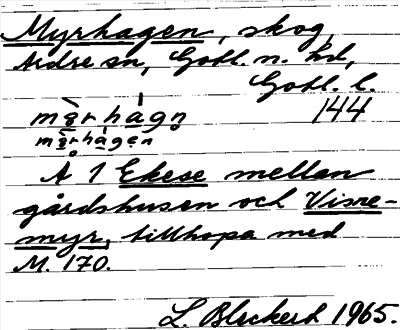 Myrhagen, skog,
Ardre sn, Gotl. n. hd,
Gotl. l.
144
Å 1 Ekese mellan
gårdshusen och Visne-
myr, tillhopa med
M. 170.
L. Bleckert 1965.